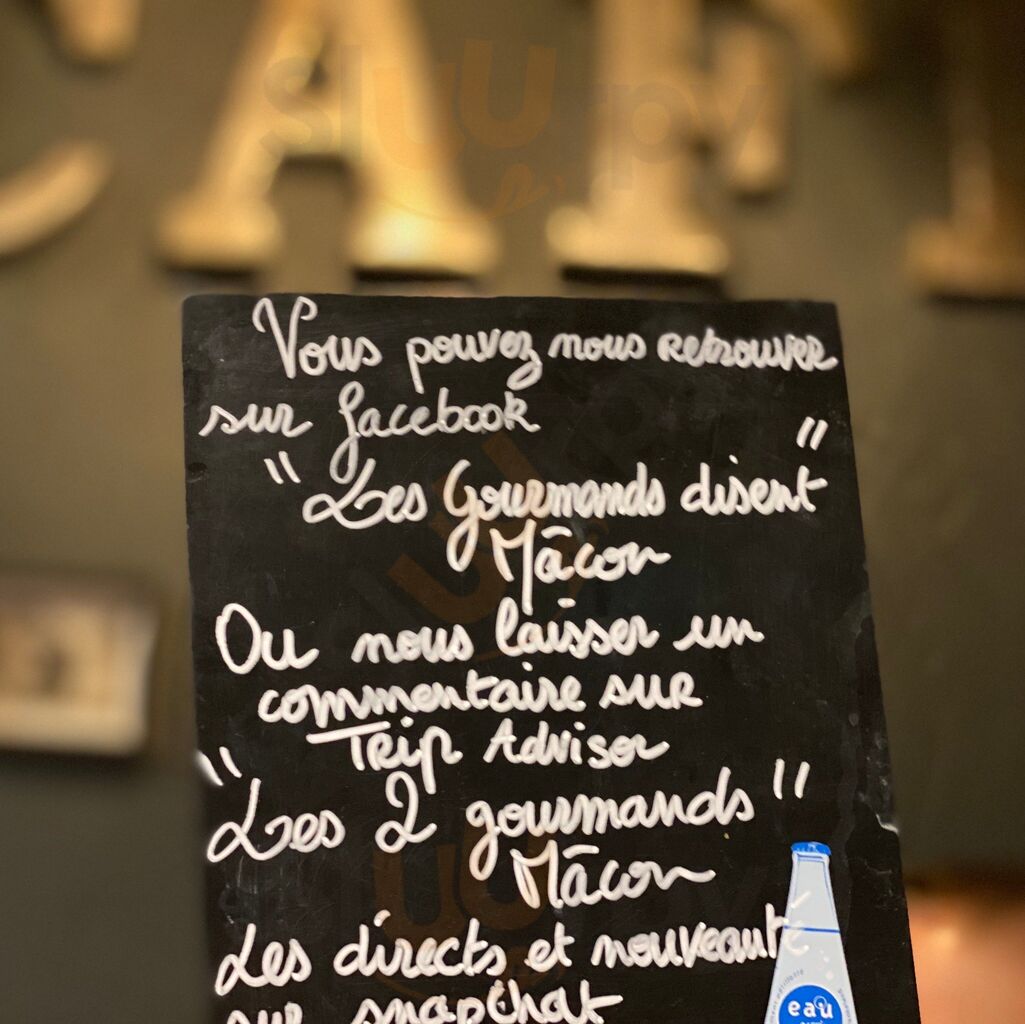 CAF
Vous pouvez nous retrouver
sur facebook
"Les Gourmands disent"
Mâcon
Ou nous laisser un
commentaire sur
Trip Advisor
"Les 2 gourmands"
Mâcon
Les directs et nouveauté
sur snapchat
eau
sluurpy